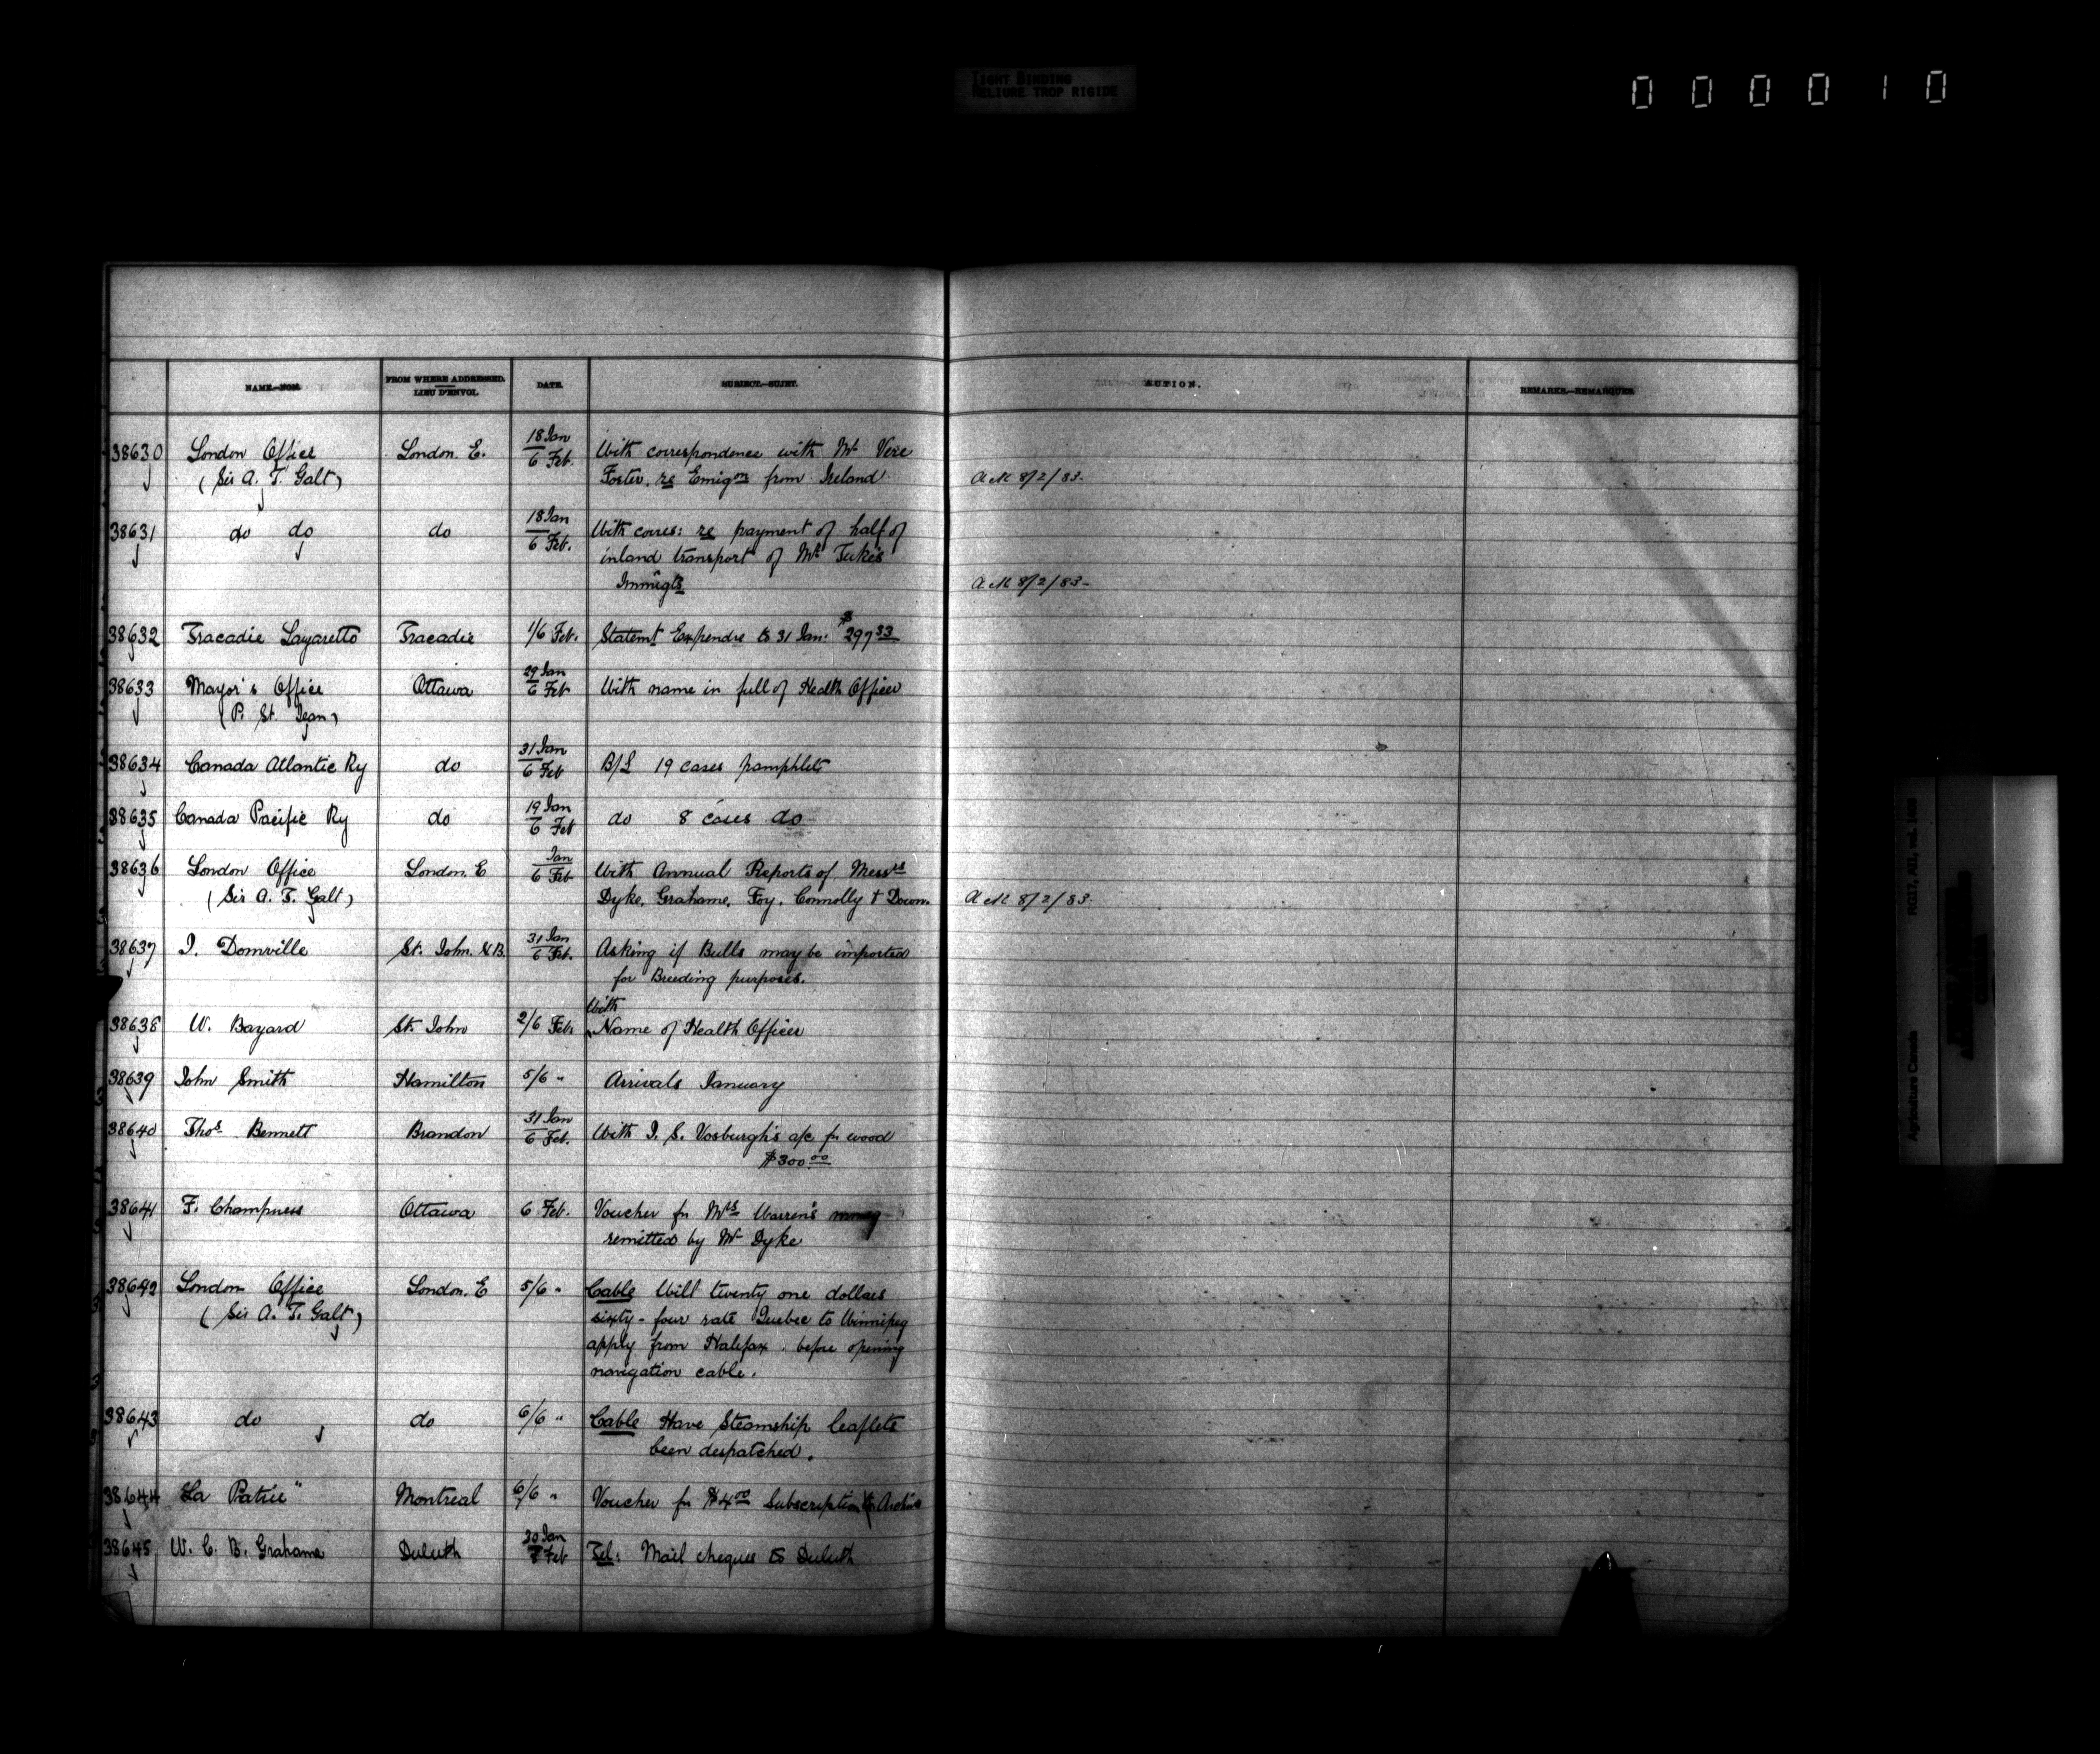 TIGHT BINDING
RELIURE TROP RIGIDE
000010
NAME.—NOM.
FROM WHERE ADDRESSED.
LIEU D'ENVOI.
DATE.
SUBJECT.—SUJET.
ACTION.
REMARKS.—REMARQUES.
38630 London Office London. E. 18 Jan With correspondence with Mr Vere
(Sir A. T. Galt) 6 Feb. Foster. re Emigon from Ireland 8/2/83.
38631 do do do 18 Jan With corres: re payment of half of
6 Feb. inland transport of Mr Tuke's
Immigts 8/2/83-
38632 Tracadie Lazaretto Tracadie 1/6 Feb. Statemt Expendre to 31 Jan: $297 33
38633 Mayor's Office Ottawa 29 Jan With name in full of Health Officer
(P. St. Jean) 6 Feb
38634 Canada Atlantic Ry do 31 Jan B/L 19 cases pamphlets
6 Feb
38635 Canada Pacific Ry do 19 Jan do 8 cases do
6 Feb
38636 London Office London. E Jan With Annual Reports of Messrs
(Sir A. T. Galt) 6 Feb Dyke, Grahame, Foy, Connolly & Down. 8/2/83.
38637 J. Domville St. John. N.B. 31 Jan Asking if Bulls may be imported
6 Feb. for Breeding purposes.
With
38638 W. Bayard St. John 2/6 Feb. Name of Health Officer
38639 John Smith Hamilton 5/6 " Arrivals January
38640 Thos. Bennett Brandon 31 Jan With J. S. Vosburgh's a/c for wood
6 Feb. $300 00
38641 F. Champness Ottawa 6 Feb. Voucher for Mrs Warren's money
remitted by Mr Dyke
38642 London Office London. E 5/6 " Cable Will twenty one dollars
(Sir A. T. Galt) sixty-four rate Quebec to Winnipeg
apply from Halifax. before opening
navigation cable.
38643 do do 6/6 " Cable Have Steamship leaflets
been despatched.
38644 La Patrie" Montreal 6/6 " Voucher for $4 00 Subscription
38645 W. C. B. Grahame Duluth 30 Jan Tel: Mail cheques to Duluth
7 Feb
Agriculture Canada
RG17, AII, vol.